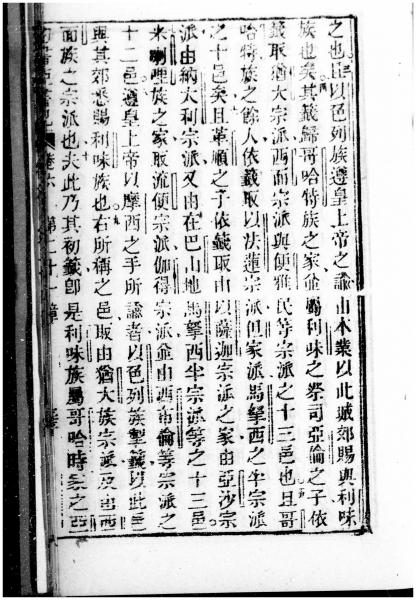 之也。且以色列族遵皇上帝之諭由本業以此城郊賜與利味
族也矣其籤歸哥哈特族之家並屬利味之祭司亞倫之子依
籤取猶大宗派西面宗派與便雅民等宗派之十三邑也且哥
哈特族之餘人依籤取以法蓮宗派但家派馬拏西之半宗派
之十邑矣且革順之子依籤取由以薩迦宗派之家由亞沙宗
派由納大利宗派又由在巴山地馬拏西半宗派等之十三邑
米喇哩族之家取流便宗派伽得宗派並由西布倫等宗派之
十二邑遵皇上帝以摩西之手所諭者以色列族掣籤以此邑
與其郊悉賜利味族也右所稱之邑取由猶大族宗派及由西
面族之宗派也夫此乃其初籤卽是利味族屬哥哈時家之亞
約書亞書記 卷六 第二十一章